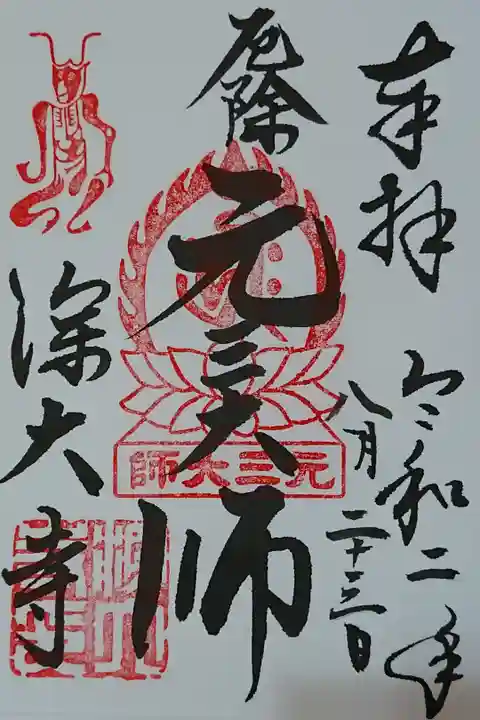 奉拝
令和二年
八月二十三日
厄除
元三大師
元三大師
深大寺